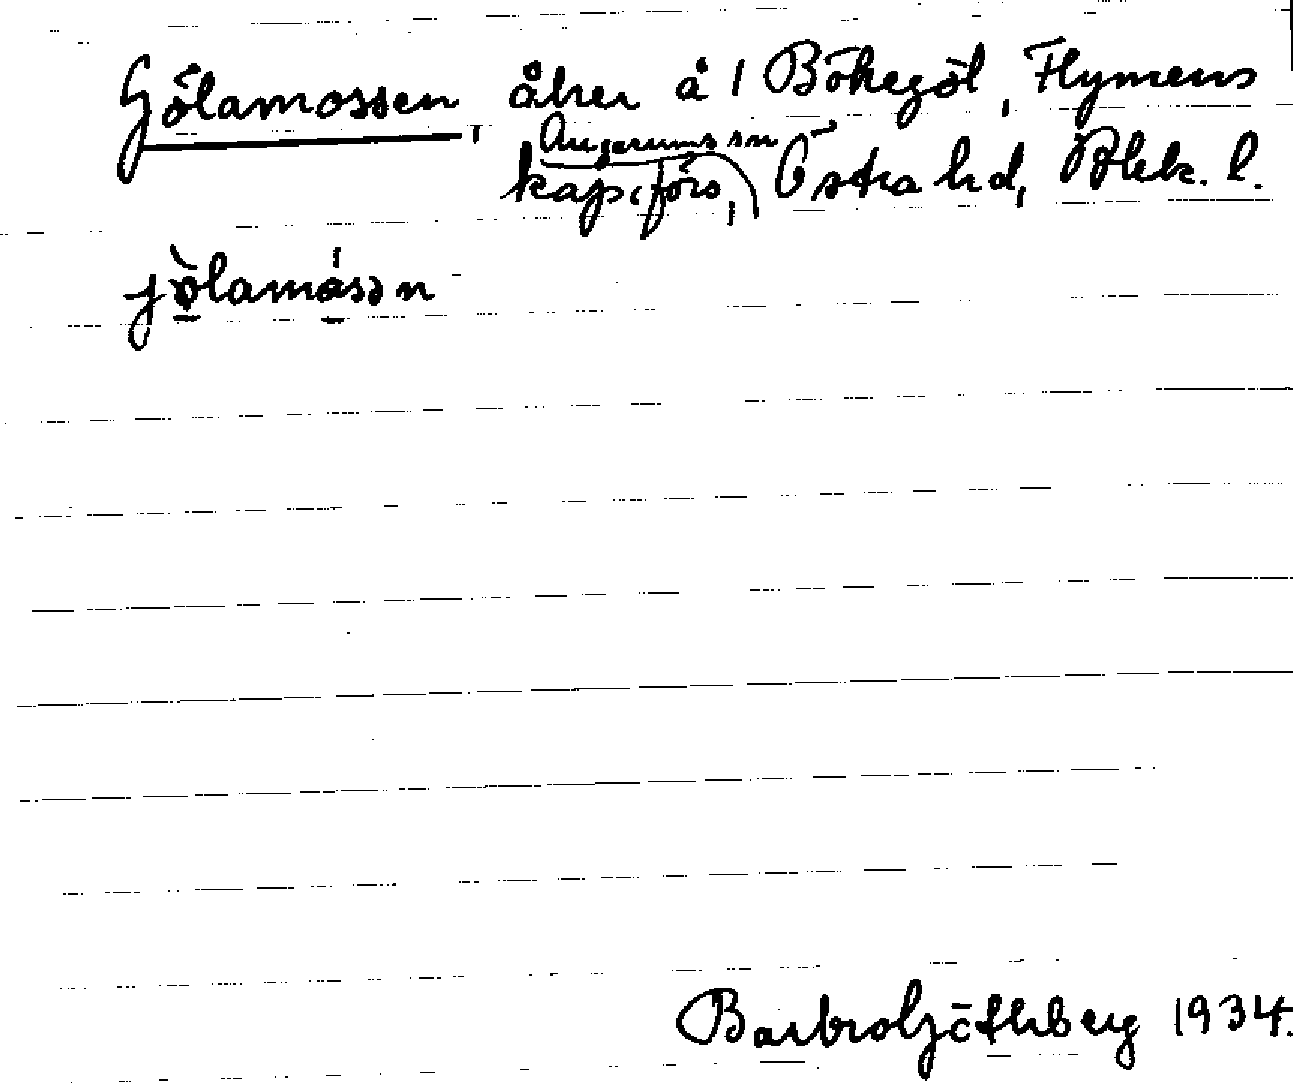 Gölamossen, åker å 1 Bökegöl, Flymens
Augerums sn
kap. förs, Östra hd, Blek. l.
jò̱lamǻsən
Barbro Götthberg 1934.